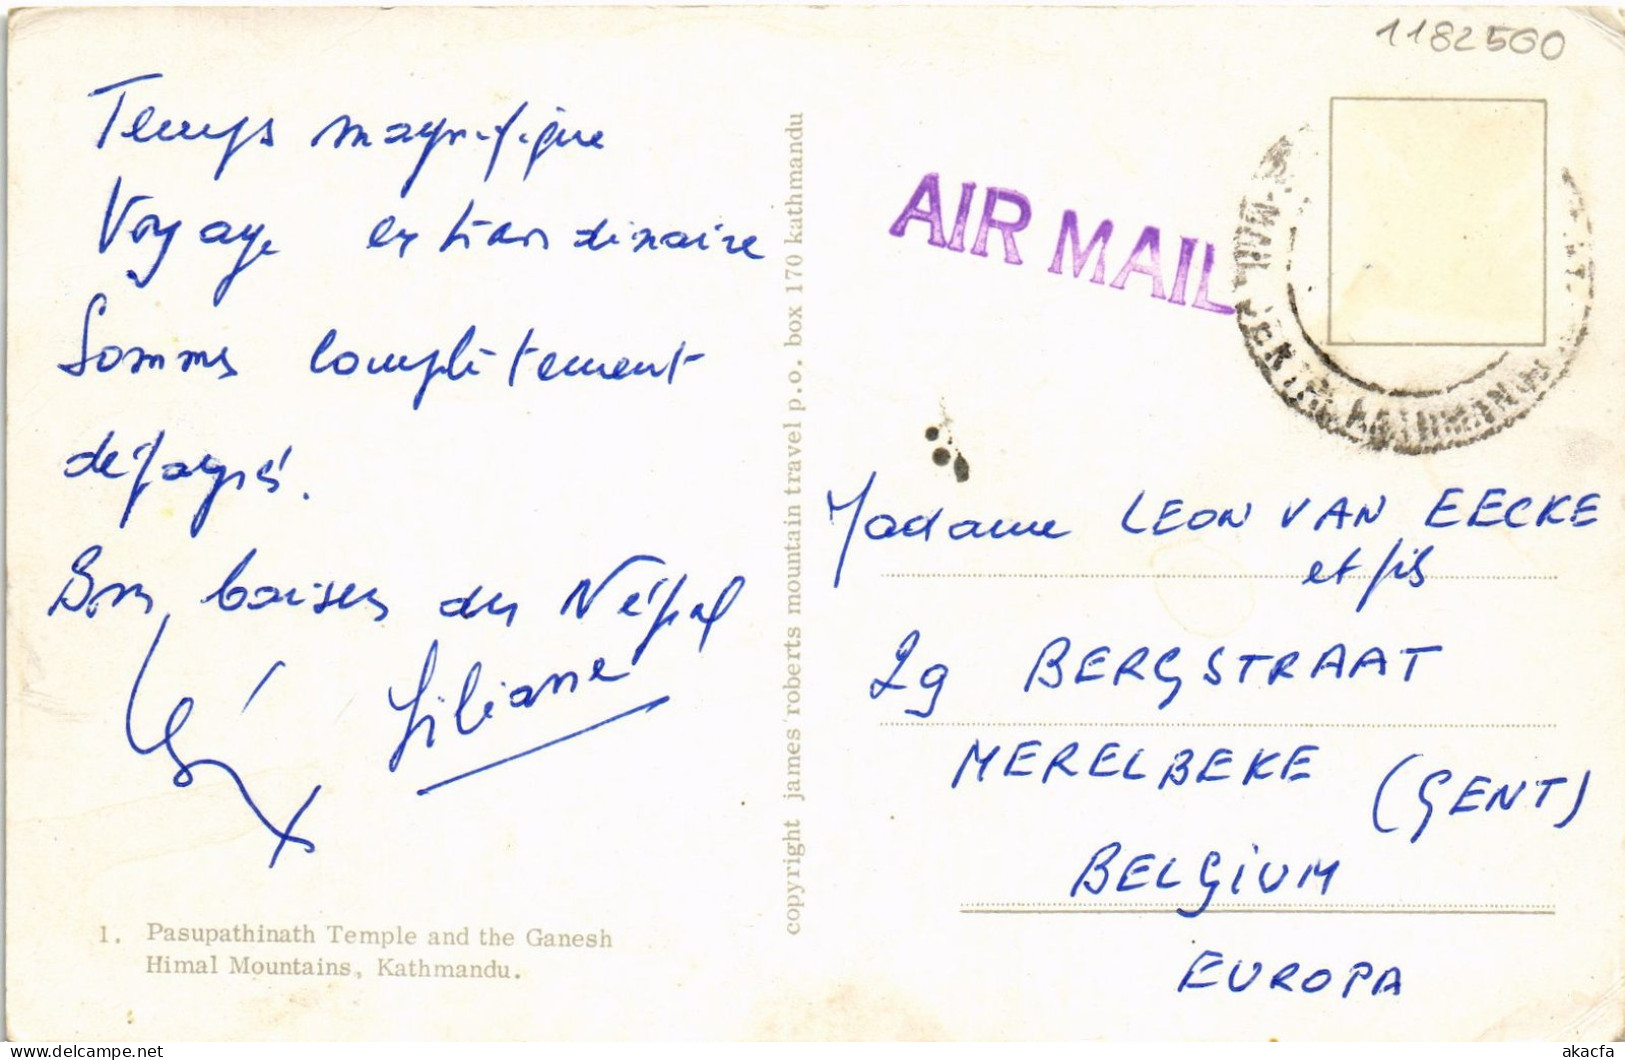 1182560
Temps magnifique
Voyage extraordinaire
Sommes complètement
dépaysés.
Bons baisers du Népal
Liliane
1. Pasupathinath Temple and the Ganesh
Himal Mountains, Kathmandu.
copyright james roberts mountain travel p.o. box 170 kathmandu
AIR MAIL
Madame LEON VAN EECKE
et fils
29 BERGSTRAAT
MERELBEKE (GENT)
BELGIUM
EUROPA
delcampe.net
akacfa